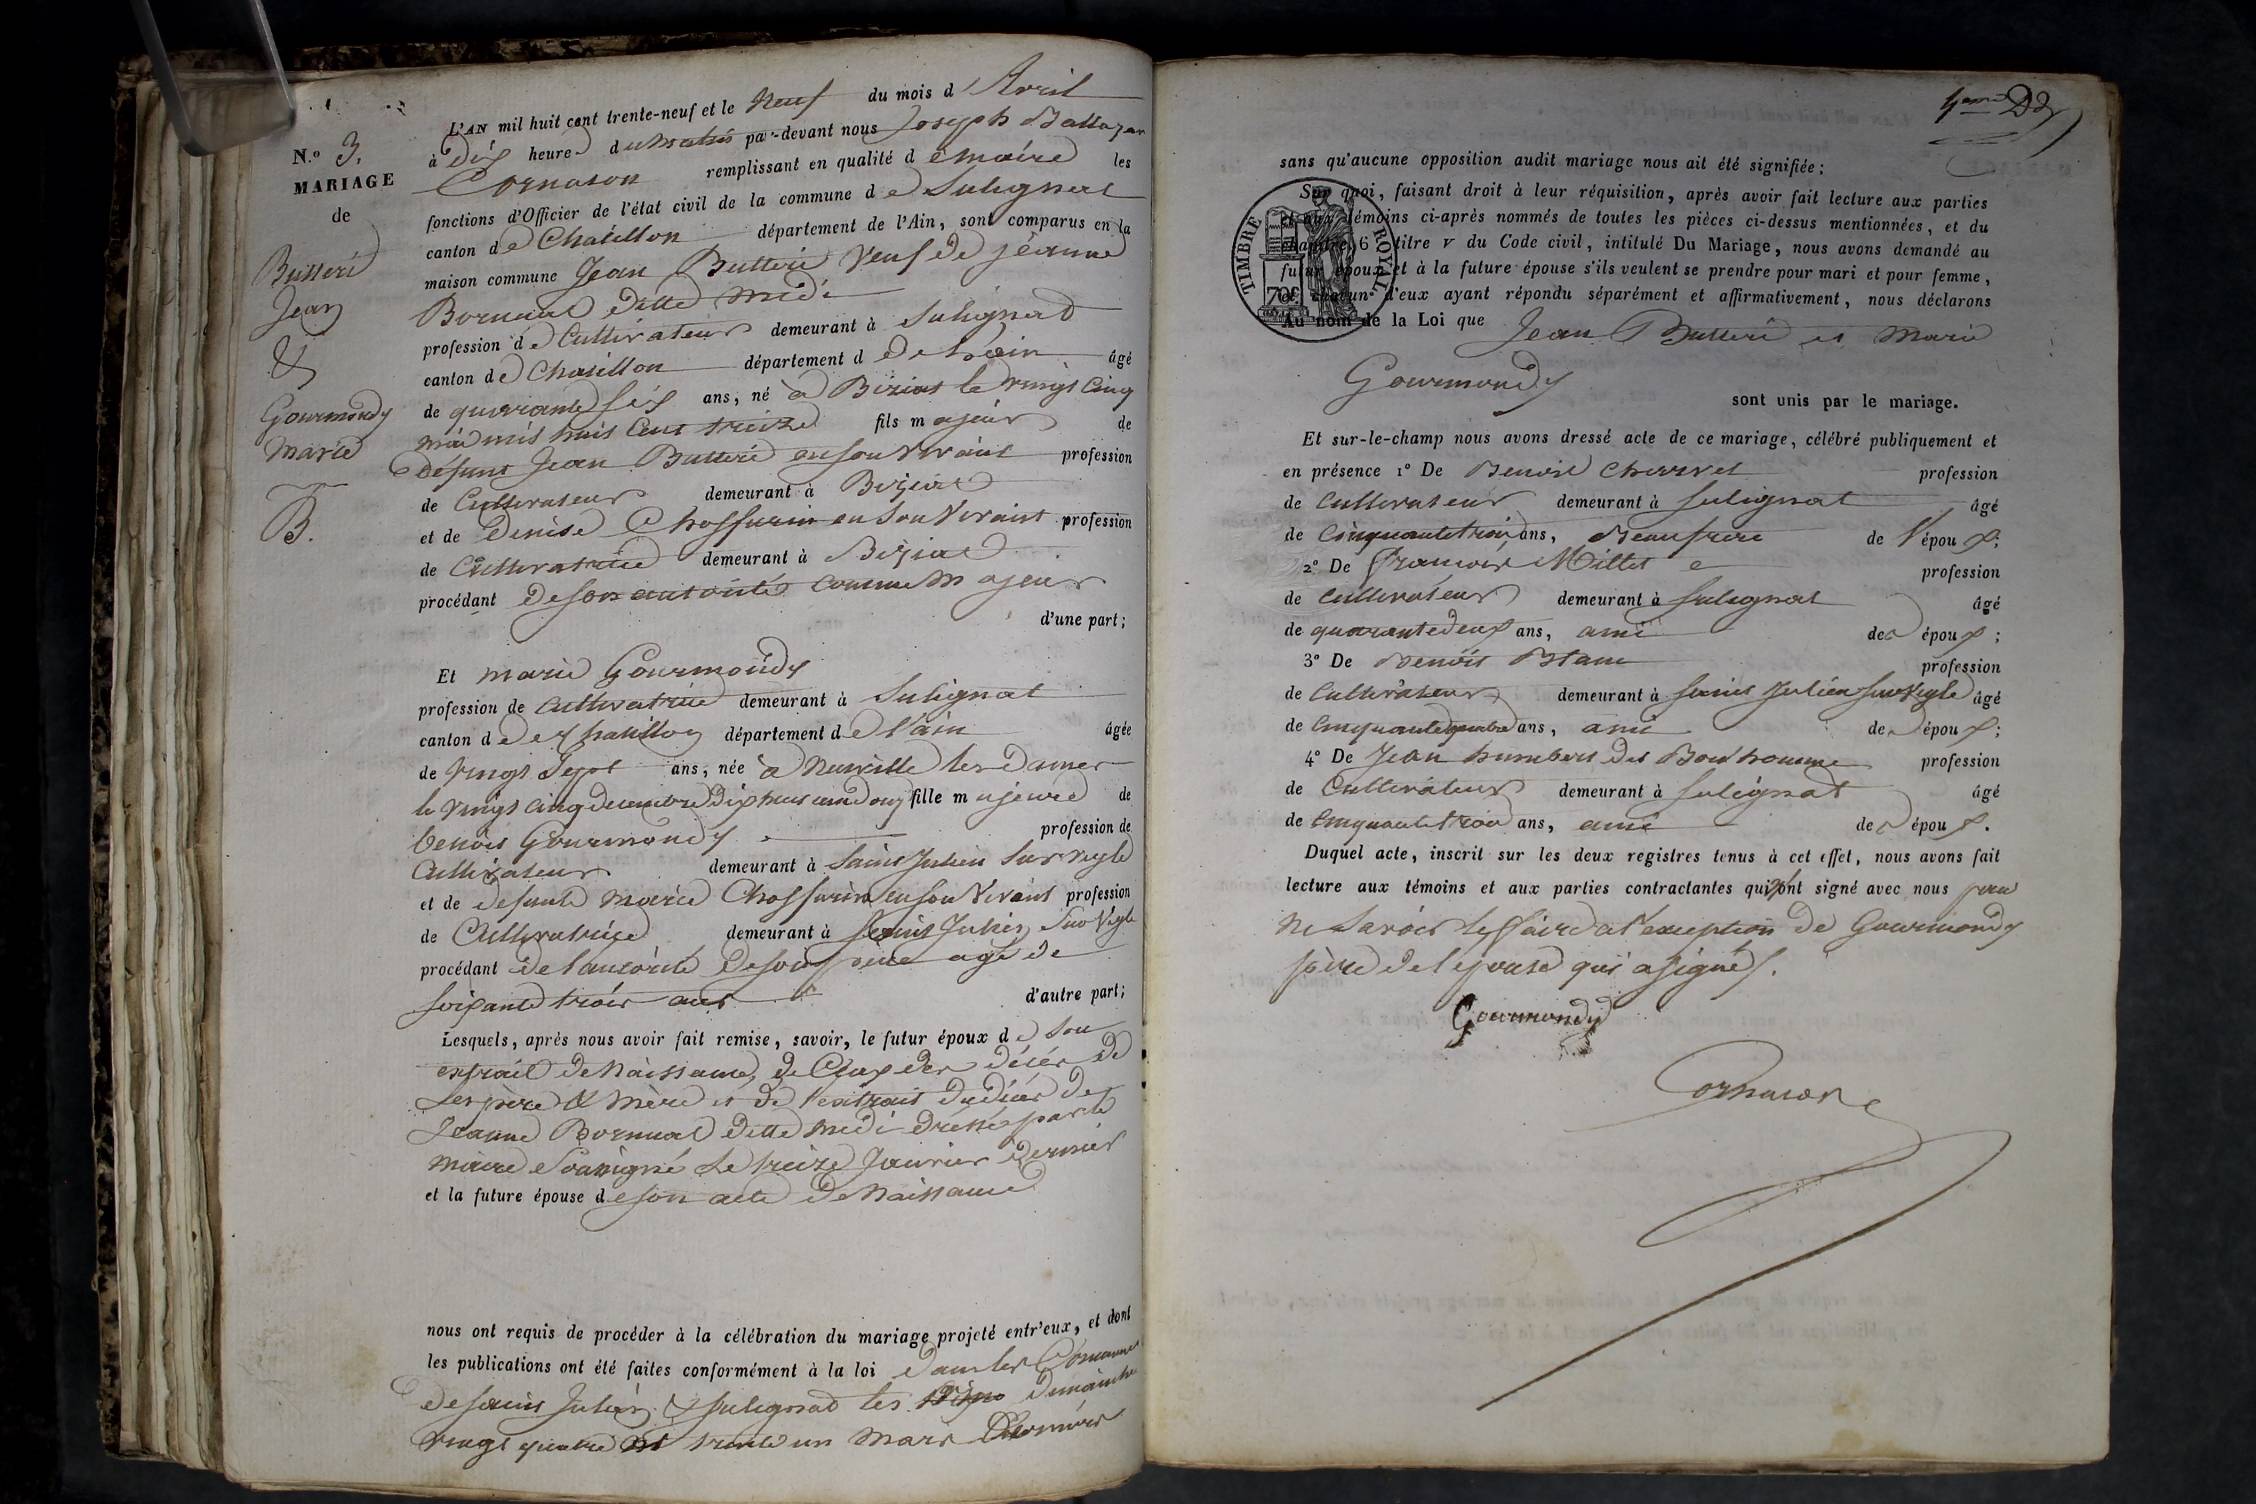 N.o 3.
MARIAGE
de
Butteri
Jean
&
Gourmondy
Marie
B.
L'AN mil huit cent trente-neuf et le neuf du mois d'Avril
à dix heures du matin par-devant nous Joseph Baltazar
Cornaton remplissant en qualité de maire les
fonctions d'Officier de l'état civil de la commune de Sulignat
canton de Chatillon département de l'Ain, sont comparus en la
maison commune Jean Butteri veuf de jeanne
Bornuat ditte midi
profession de Cultivateur demeurant à Sulignat
canton de Chatillon département de de L'ain âgé
de quarante six ans, né à Biziat le vingt Cinq
mai mil huit Cent treize fils majeur de
défunt Jean Butteri en son vivant profession
de Cultivateur demeurant à Biziat
et de Denise Chossurin en son vivant profession
de Cultivatrice demeurant à Biziat
procédant de son autorité comme majeur
d'une part;
Et marie Gourmondy
profession de cultivatrice demeurant à Sulignat
canton de de Chatillon département de l'ain âgée
de vingt Sept ans, née à Neuville les Dames
le vingt cinq decembre dix huit cent onze fille majeure de
benoit Gourmondy profession de
Cultivateur demeurant à Saint Julien sur veyle
et de defunte marie Chossurin en son vivant profession
de Cultivatrice demeurant à Saint Julien sur Veyle
procédant de l'autorité de son père agé de
soixante trois ans d'autre part;
Lesquels, après nous avoir fait remise, savoir, le futur époux de son
extrait de Naissance, de Ceux des décès de
ses père & mère et de l'extrait du décès de
Jeanne Bornuat ditte midi dressé par le
maire soussigné le treize Janvier dernier
et la future épouse de son acte de Naissance
nous ont requis de procéder à la célébration du mariage projeté entr'eux, et dont
les publications ont été faites conformément à la loi dans les Communes
de saint Julien & sulignat les dimanche
vingt quatre et trente un mars dernier
sans qu'aucune opposition audit mariage nous ait été signifiée:
TIMBRE ROYAL
70c
Sur quoi, faisant droit à leur réquisition, après avoir fait lecture aux parties
et aux témoins ci-après nommés de toutes les pièces ci-dessus mentionnées, et du
chapitre 6 titre V du Code civil, intitulé Du Mariage, nous avons demandé au
futur époux et à la future épouse s'ils veulent se prendre pour mari et pour femme,
et chacun d'eux ayant répondu séparément et affirmativement, nous déclarons
Au nom de la Loi que Jean Butteri et Marie
Gourmondy
sont unis par le mariage.
Et sur-le-champ nous avons dressé acte de ce mariage, célébré publiquement et
en présence 1° De Benoit Charvet profession
de cultivateur demeurant à sulignat âgé
de cinquante trois ans, Beaufrere de l'époux;
2° De François Millet profession
de cultivateur demeurant à sulignat âgé
de quarante deux ans, ami des époux;
3° De Benoit Blanc profession
de Cultivateur demeurant à saint Julien sur Veyle âgé
de Cinquante quatre ans, ami des époux;
4° De Jean humbert Des Bonhomme profession
de Cultivateur demeurant à Sulignat âgé
de Cinquante trois ans, ami des époux.
Duquel acte, inscrit sur les deux registres tenus à cet effet, nous avons fait
lecture aux témoins et aux parties contractantes qui n'ont signé avec nous pour
ne Savoir le faire a l'exception de Gourmondy
père de l'epouse qui a signé.
Gourmondy
Cornaton